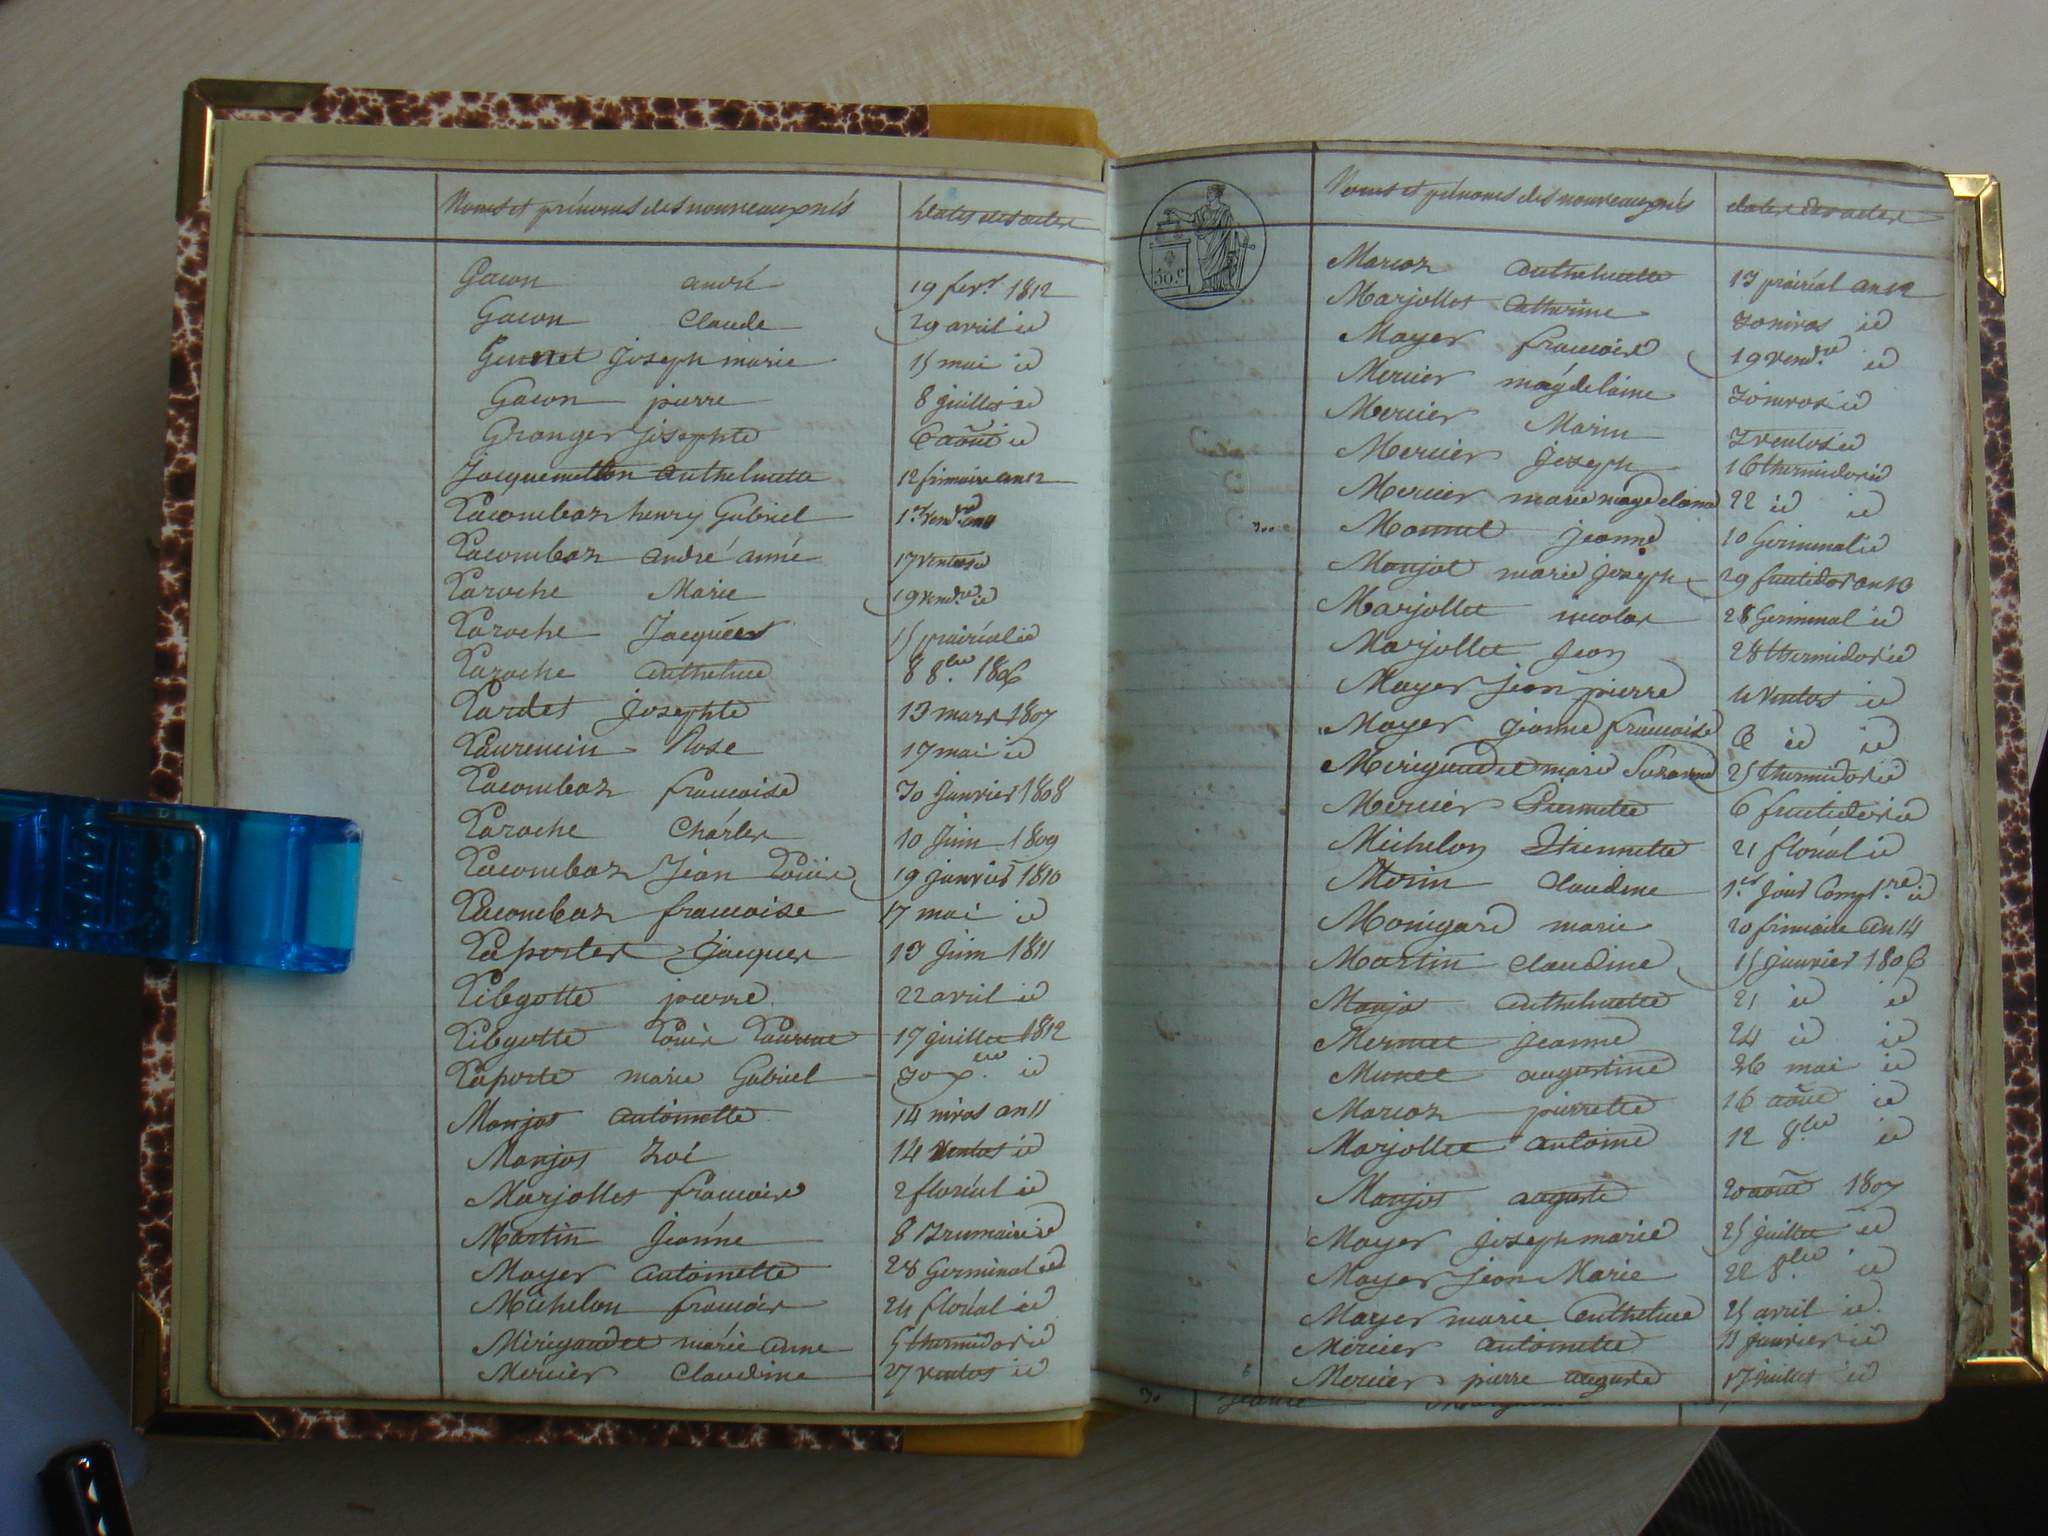 Noms et prénoms des nouveaux nés dates des actes
Gacon andré 19 fev.r 1812
Gacon Claude 29 avril id
Gennet Joseph marie 15 mai id
Gacon pierre 8 juillet id
Granger josephte 6 août id
Jacquemetton anthelmette 12 frimaire an 12
Lacombaz henry Gabriel 1.er Vend.re an 11
Lacombaz andré année 17 ventos id
Laroche Marie 19 vend.re id
Laroche Jacques 15 prairéal id
Laroche anthelme 8 8.bre 1806
Lardet Josephte 13 mars 1807
Lauremin Rose 17 mai id
Lacombaz francoise 30 janvier 1808
Laroche Charles 10 Juin 1809
Lacombaz Jéan Louis 19 janvier 1810
Lacombaz francoise 17 mai id
Laporter Jacques 13 Juin 1811
Libgotte pierre 22 avril id
Libgotte Louis Laurent 17 juillet 1812
Laporte marie Gabriel 30 X.bre id
Monjot antoinette 14 nivos an 11
Monjot Zoé 14 Ventos id
Marjollet francoise 2 floréal id
Martin Jeanne 8 Brumaire id
Mayer antoinette 28 Germinal id
Michelon francois 24 floréal id
Mirigaudet marie anne 5 thermidor id
Mercier Claudine 27 ventos id
Noms et prénoms des nouveaux nés dates des actes
50.c
Marcoz anthelmette 13 prairéal an 12
Marjollet Catherine 30 nivos id
Mayer francoise 19 vend.re id
Mercier magdelaine 30 nivos id
Mercier Marin 7 ventos id
Mercier Joseph 16 thermidor id
Mercier marie magdelaine 22 id id
Monnet jeanne 10 Germinal id
Monjot marie joseph 29 fructidor an 13
Marjollet nicolas 28 Germinal id
Marjollet Jean 28 thermidor id
Mayer Jean pierre 4 Ventos id
Mayer jeanne francoise 6 id id
Mirigaudet marie Suzanne 25 thermidor id
Mercier Pierrette 6 fructidor id
Michelon Etiennette 21 floréal id
Morin Claudine 1.er jour Compl.re id
Monigard marie 20 frimaire an 14
Martin Claudine 15 janvier 1806
Monjo anthelmette 21 id id
Mermet jeanne 24 id id
Munet augustine 26 mai id
Marcoz pierrette 16 août id
Marjollet antoine 12 8.bre id
Monjot auguste 20 août 1807
Mayer joseph marie 25 juillet id
Mayer Jean Marie 22 8.bre id
Mayer marie anthelme 25 avril id
Mercier antoinette 11 Janvier id
Mercier pierre auguste 17 juillet id